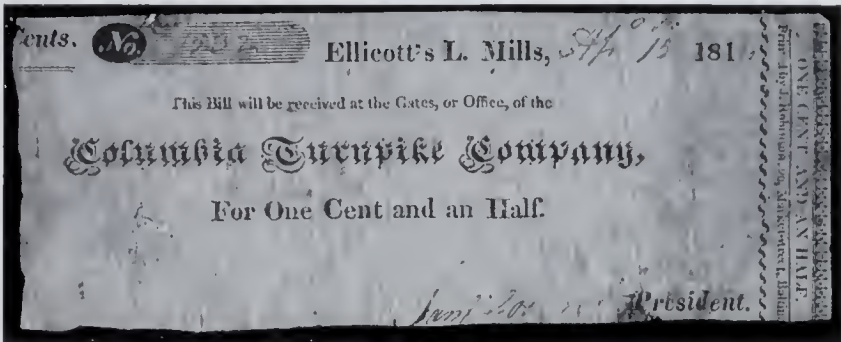 Cents. No. Ellicott's L. Mills, 15 181
This Bill will be received at the Gates, or Office, of the
Columbia Turnpike Company,
For One Cent and an Half.
President.
ONE CENT AND AN HALF.
Print. by J. Robinson, Market-street,